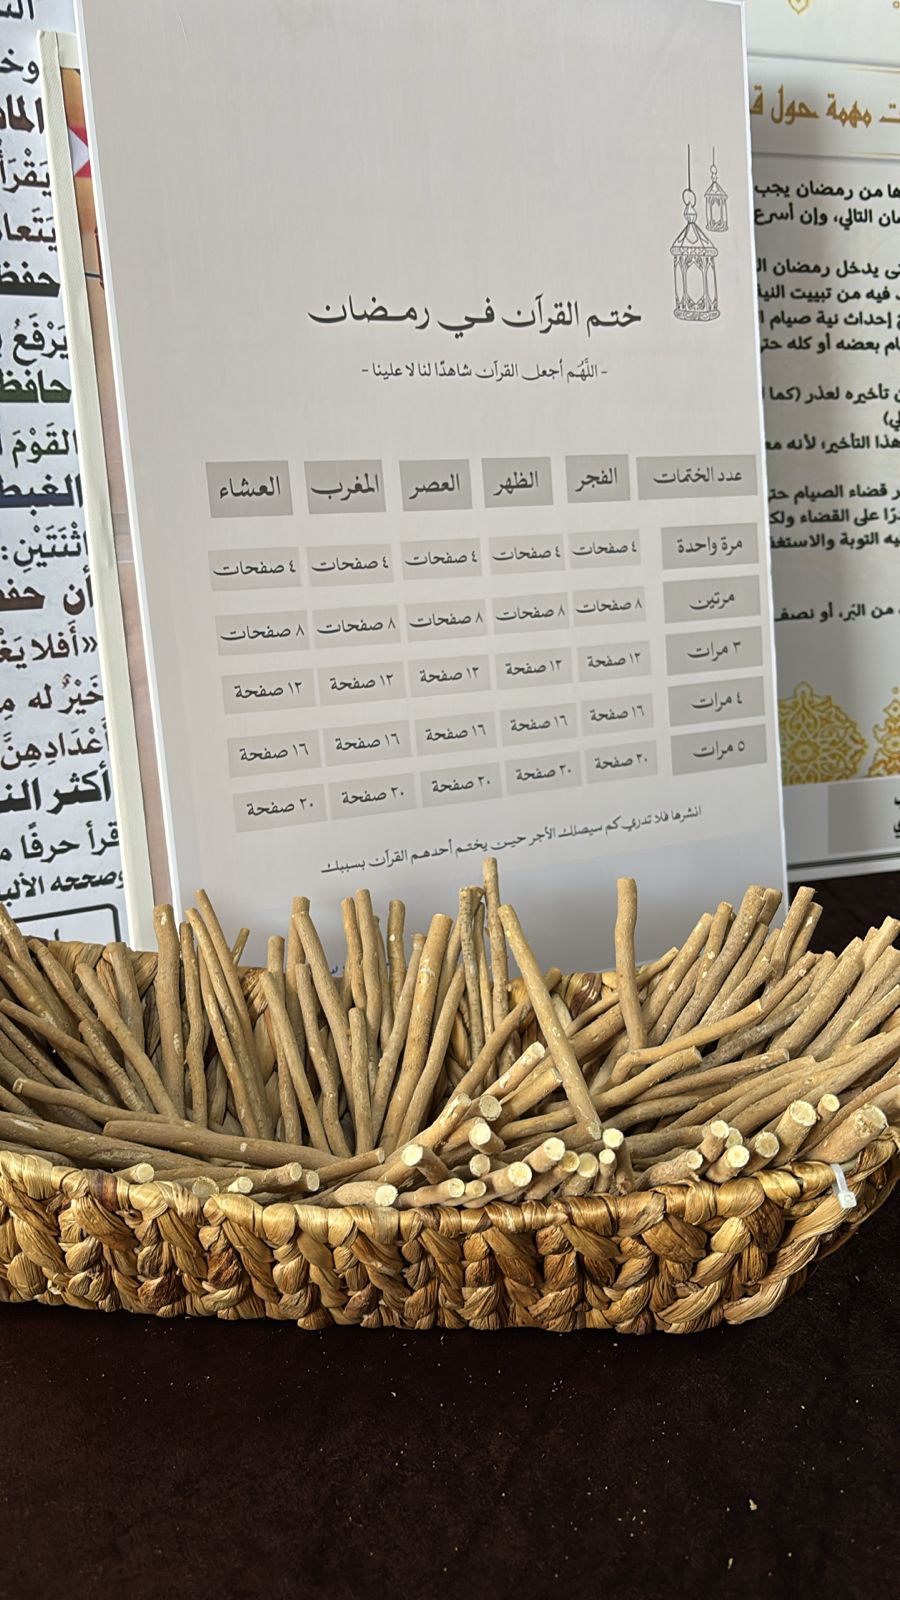 ختم القرآن في رمضان
- اللَّهُم أجعل القرآن شاهدًا لنا لا علينا -
عدد الختمات الفجر الظهر العصر المغرب العشاء
مرة واحدة ٤ صفحات ٤ صفحات ٤ صفحات ٤ صفحات ٤ صفحات
مرتين ٨ صفحات ٨ صفحات ٨ صفحات ٨ صفحات ٨ صفحات
٣ مرات ١٢ صفحة ١٢ صفحة ١٢ صفحة ١٢ صفحة ١٢ صفحة
٤ مرات ١٦ صفحة ١٦ صفحة ١٦ صفحة ١٦ صفحة ١٦ صفحة
٥ مرات ٢٠ صفحة ٢٠ صفحة ٢٠ صفحة ٢٠ صفحة ٢٠ صفحة
انشرها فلا تدري كم سيصلك الأجر حين يختم أحدهم القرآن بسببك
مهمة حول
من رمضان يجب
التالي، وإن أسرع
يدخل رمضان
فيه من تبييت النية
إحداث نية صيام
بعضه أو كله
تأخيره لعذر (كما
هذا التأخير؛ لأنه
قضاء الصيام
على القضاء
التوبة
من البُر، أو نصف
حفظ
يَرْفَعُ
القَوْمَ
اثْنَتَيْنِ:
أن
«أَفلا
خَيْرٌ له
أَعْدَادِهِنَّ
أكثر
حرفًا
وصححه